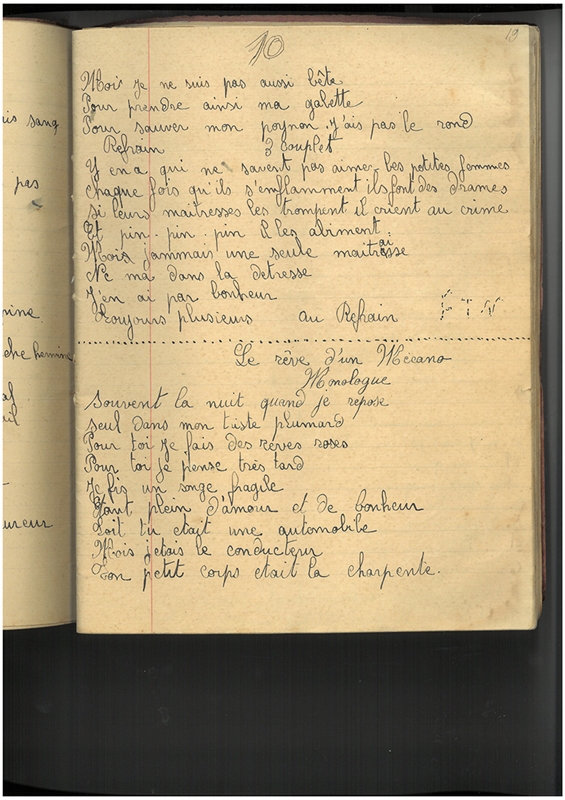 10
19
Moi je ne suis pas aussi bête
Pour prendre ainsi ma galette
Pour sauver mon pognon j'ais pas le rond
Refrain 3 couplet
Y en a qui ne savent pas aimer les petites femmes
chaque fois qu'ils s'enflamment ils font des drames
si leurs maitresses les trompent il crient au crime
Et pin. pin. pin les abiment
Mois jammais une seule maitraisse
Ne ma dans la detresse
J'en ai par bonheur
Toujours plusieurs au Refrain Fin
Le rêve d'un Mécano
Monologue
Souvent la nuit quand je repose
seul dans mon triste plumard
Pour toi je fais des rêves roses
Pour toi je pense très tard
Je fis un songe fragile
Tout plein d'amour et de bonheur
Toit tu etait une automobile
Mois jetais le conducteur
Ton petit corps etait la charpente.
uis sang
pas
nine
che hermine
al
ail
ureur